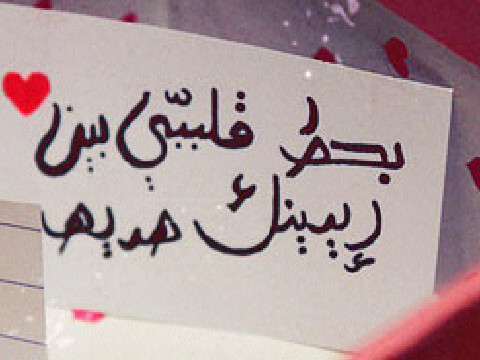 بحط قلبّي بين
إيدينك هديه